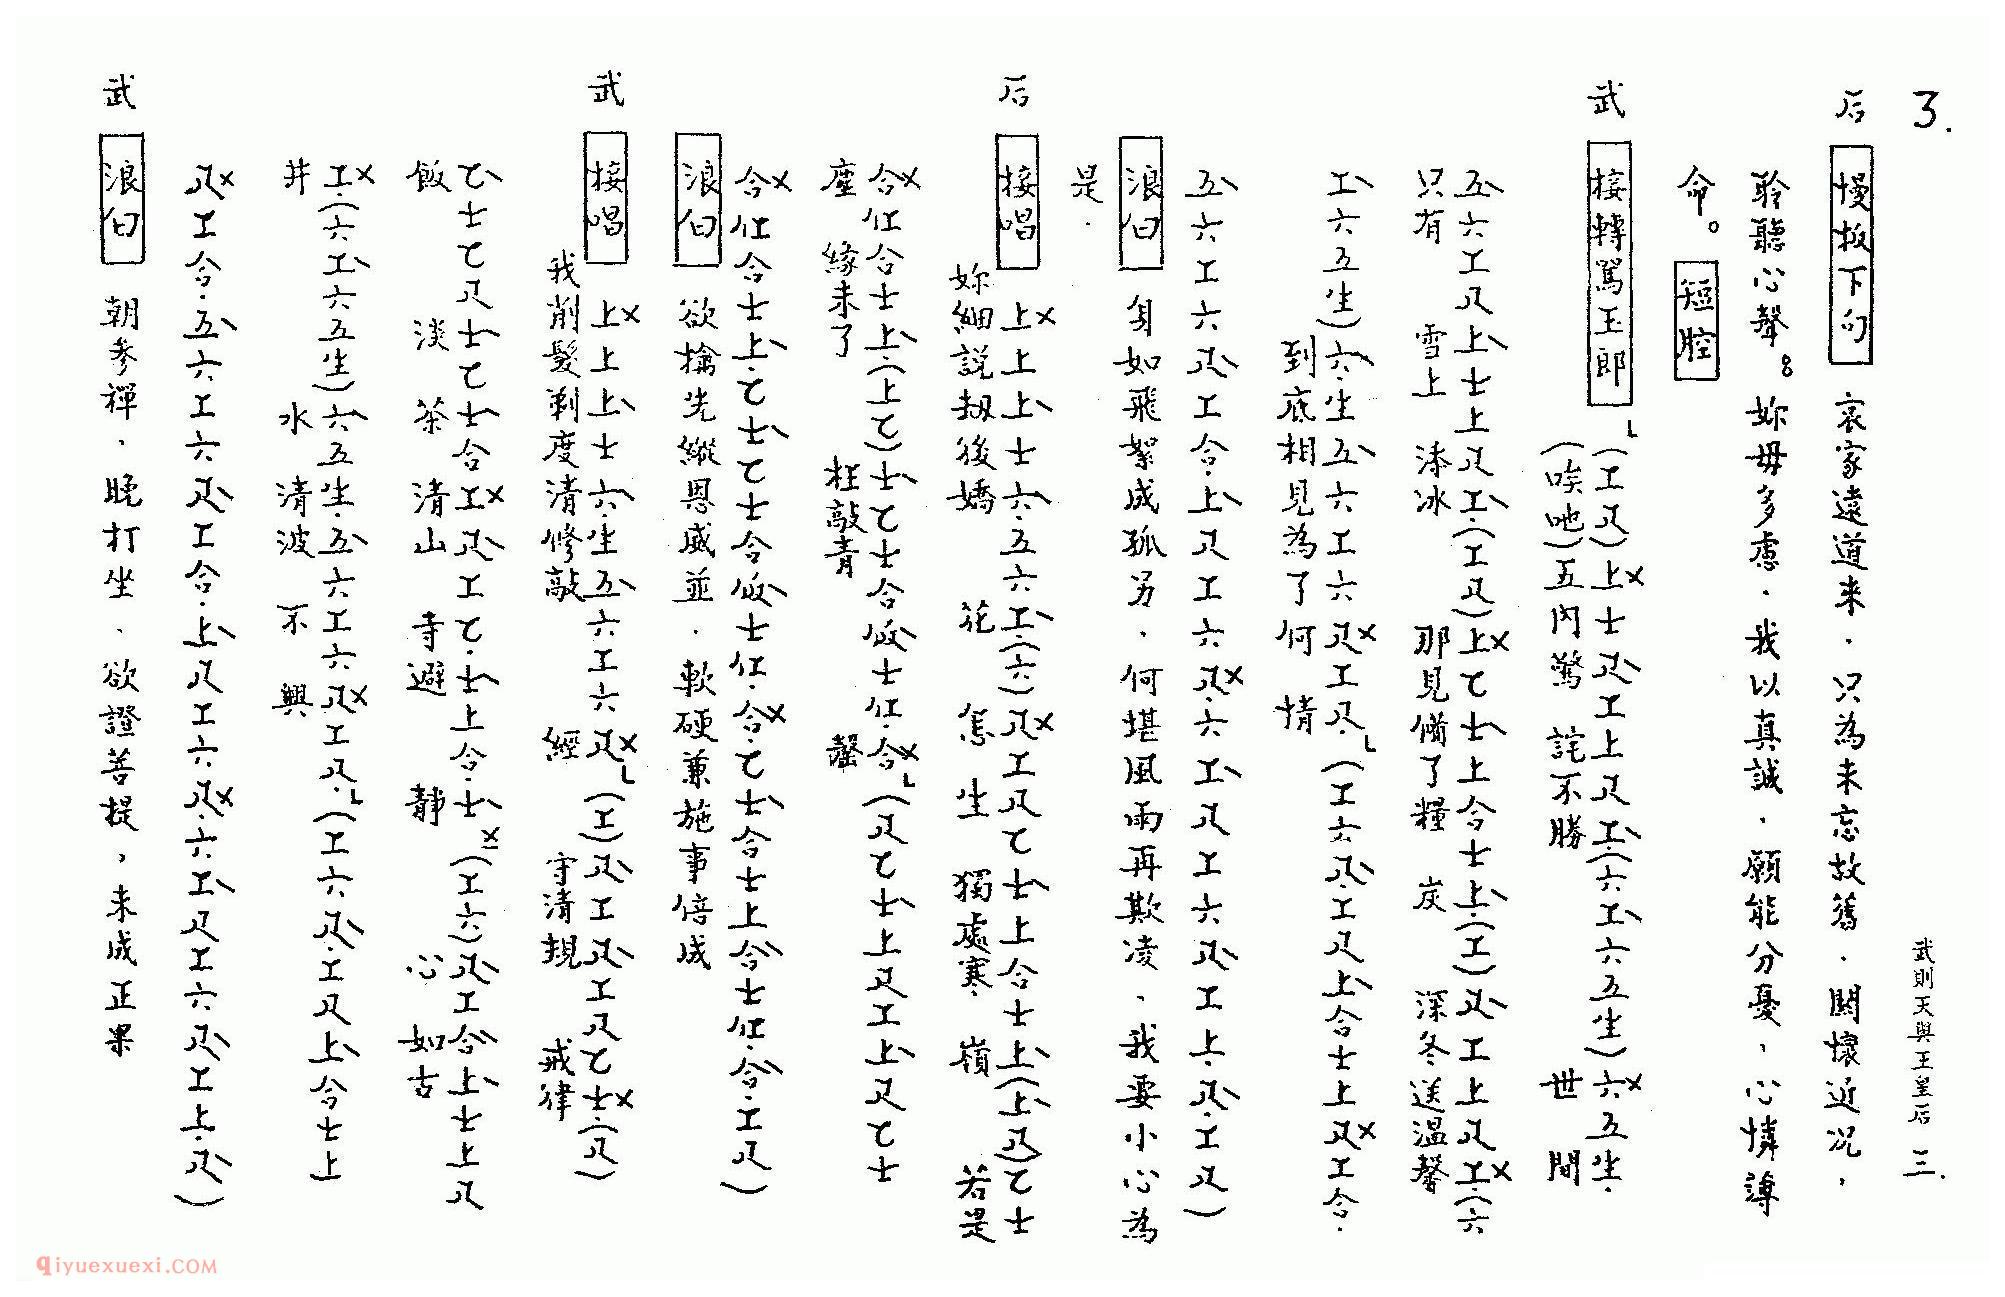 3.
武則天與王皇后 三.
后 慢板下句 哀家遠道來．只為未忘故舊．關懷近況，
聆聽心聲。妳毋多慮．我以真誠．願能分憂，心憐薄
命。短腔
武 接轉罵玉郎 (工尺)上士尺工上尺工.(六工六五生)六五生.
(唉吔)五內驚 詫不勝 世間
五六工尺上士上尺工.(工尺)上乙士上合士上.(工)尺工上尺工.(六
只有 雪上 添冰 那見備了糧 炭 深冬送温馨
工六五生)六.生五六工六尺工尺.(工六尺.工尺上合士上尺工合.
到底相見為了何 情
五六工六尺工合.上尺工六尺.六工尺工六尺工上.尺.工尺)
浪白 身如飛絮成孤另．何堪風雨再欺凌．我要小心為
是．
后 接唱 上上上上士六.五六工.(六)尺工尺乙士上合士上(上尺)乙士
妳細説拐後嬌 花 怎生 獨處寒 嶺 若是
合仕合士上.(上乙)士乙士合仮士仕.合(尺乙士上尺工上尺乙士
塵 緣未了 枉敲青 罄
合仕合士上.乙士乙士合仮士仕.合.乙士合士上合士仕.合.工尺)
浪白 欲擒先縱恩威並．軟硬兼施事倍成
武 接唱 上上上士六.生五六工六尺(工)尺工尺工尺乙士.(尺)
我削髮剃度清修敲 經 守清規 戒律
乙士乙尺士乙士合工尺工乙.士上合.士(工六)尺工合上士上尺
飯 淡 茶 清山 寺避 靜 心 如古
工.(六工六五生)六五生.五六工六尺工尺.(工六尺.工尺上合士上
井 水 清波 不 興
尺工合.五六工六尺工合.上尺工六尺.六工尺工六尺工上.尺)
武 浪白 朝參禪．晚打坐．欲證菩提，未成正果
qiyuexuexi.COM